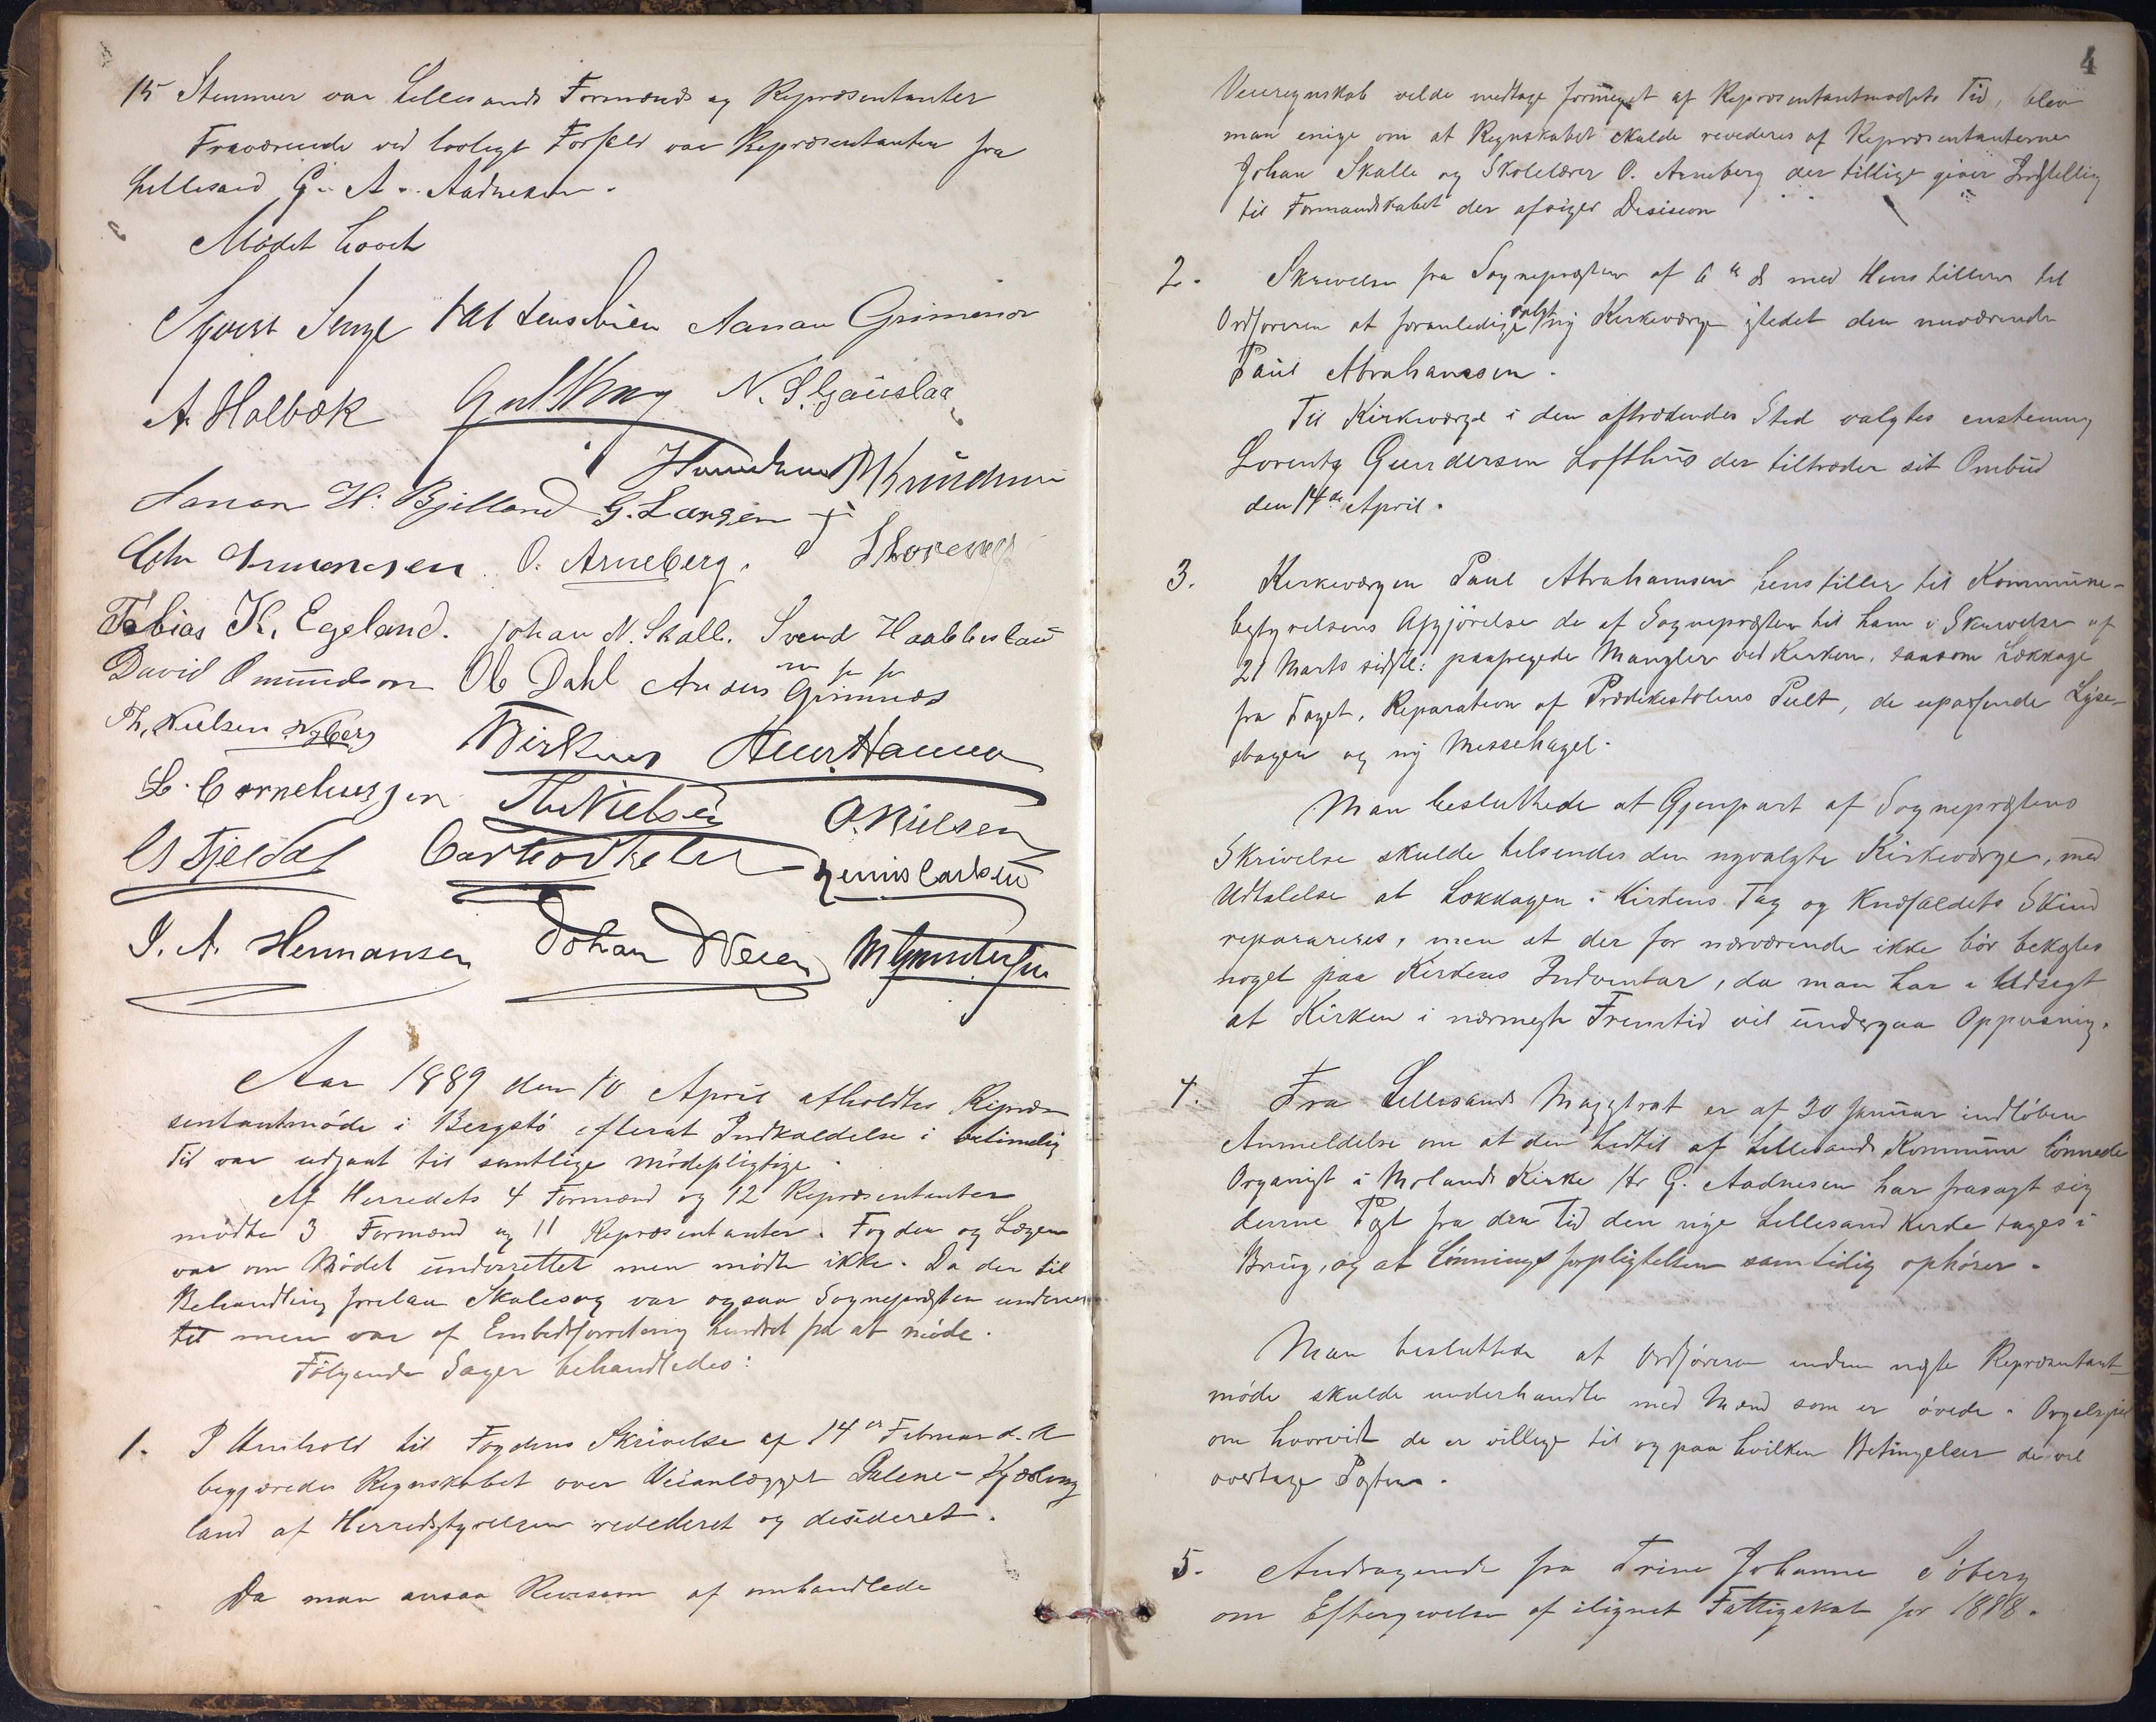 15 Stemmer var Lillesands Formænds og Repræsentanter
Fraværende ved lovligt Forfald var Repræsentanten fra
Lillesand G. A. Aadnesen.
Mødet hævet
Aanan Grimenes
A. Holbæk N. S. Gauslaa
Aanon H. Bjelland G. Larsen
O. Arneberg.
Tobias K. Egeland. Johan N. Skalle. Svend Haabbeslau
David Omundson Ole Dahl Anders Grimnes
Th. Nielsen Nyberg Birknes
L. Corneliussen Th. Nielsen O. Nielsen
G Fjeldal
J. A. Hermansen Johan
Aar 1889 den 10 April afholdtes Repræ-
sentantmøde i Bergstø efterat Indkaldelse i betimelig
Tid var udgaat til samtlige mødepligtige.
Af Herredets 4 Formænd og 12 Repræsentanter
mødte 3 Formænd og 11 Repræsentanter. Fogden og Lægen
var om Mødet underrettet men mødte ikke. Da der til
Behandling forelaa Skolesag var ogsaa Sognepræsten underret
tet men var af Embedsforretning hindret fra at møde.
Følgende Sager behandledes:
1. I Henhold til Fogdens Skrivelse af 14de Februar d. A
begjæredes Regnskabet over Veianlægget
land af Herredsstyrelsen revideret og desideret.
Da man ansaa Revision af omhandlede
4
Veiregnskab vilde medtage formeget af Repræsentantmødets Tid, blev
man enige om at Regnskabet skulde revideres af Repræsentanterne
Johan Skalle og Skolelærer O. Arneberg der tillige giver Indstilling
til Formandskabet der afsiger Desision
2. Skrivelse fra Sognepræsten af 6te ds med Henstillen til
Ordføreren at foranledige valgt ny Kirkeværge istedet den nuværende
Paul Abrahamsen.
Til Kirkeværge i den aftrædendes Sted valgtes enstemmig
Lorentz Gundersen Lofthus der tiltræder sit Ombud
den 14de April.
3. Kirkeværgen Paul Abrahamsen henstiller til Kommune-
bestyrelsens Afgjørelse de af Sognepræsten til ham i Skrivelse af
21 Marts sidstl: paapegede Mangler ved Kirken, saasom Lækkage
fra Taget, Reparation af Prædikestolens Pult, de upassende Lyse-
stager og ny Messehagel.
Man besluttede at Gjenpart af Sognepræstens
Skrivelse skulde tilsendes den nyvalgte Kirkeværge, med
Udtalelse at Lækkagen i Kirkens Tag og Knæfaldets Skind
repareres, men at der for nærværende ikke bør bekostes
noget paa Kirkens Indventar, da man har i Udsigt
at Kirken i nærmeste Fremtid vil undergaa Oppusning.
4. Fra Lillesands Magistrat er af 30 Januar indløben
Anmeldelse om at den hidtil af Lillesands Kommune lønnede
Organist i Molands Kirke Hr G. Aadnesen har frasagt sig
denne Post fra den Tid den nye Lillesand Kirke tages i
Brug, og at Lønningsforpligtelsen samtidig ophører.
Man besluttede at Ordføreren inden næste Repræsentant-
møde skulde underhandle med Mænd som er øvede i Orgelspil
om hvorvidt de er villige til og paa hvilken Betingelser de vil
overtage Posten.
5. Andragende fra Trine Johanne Søberg
om Eftergivelse af ilignet Fattigskat for 1888.